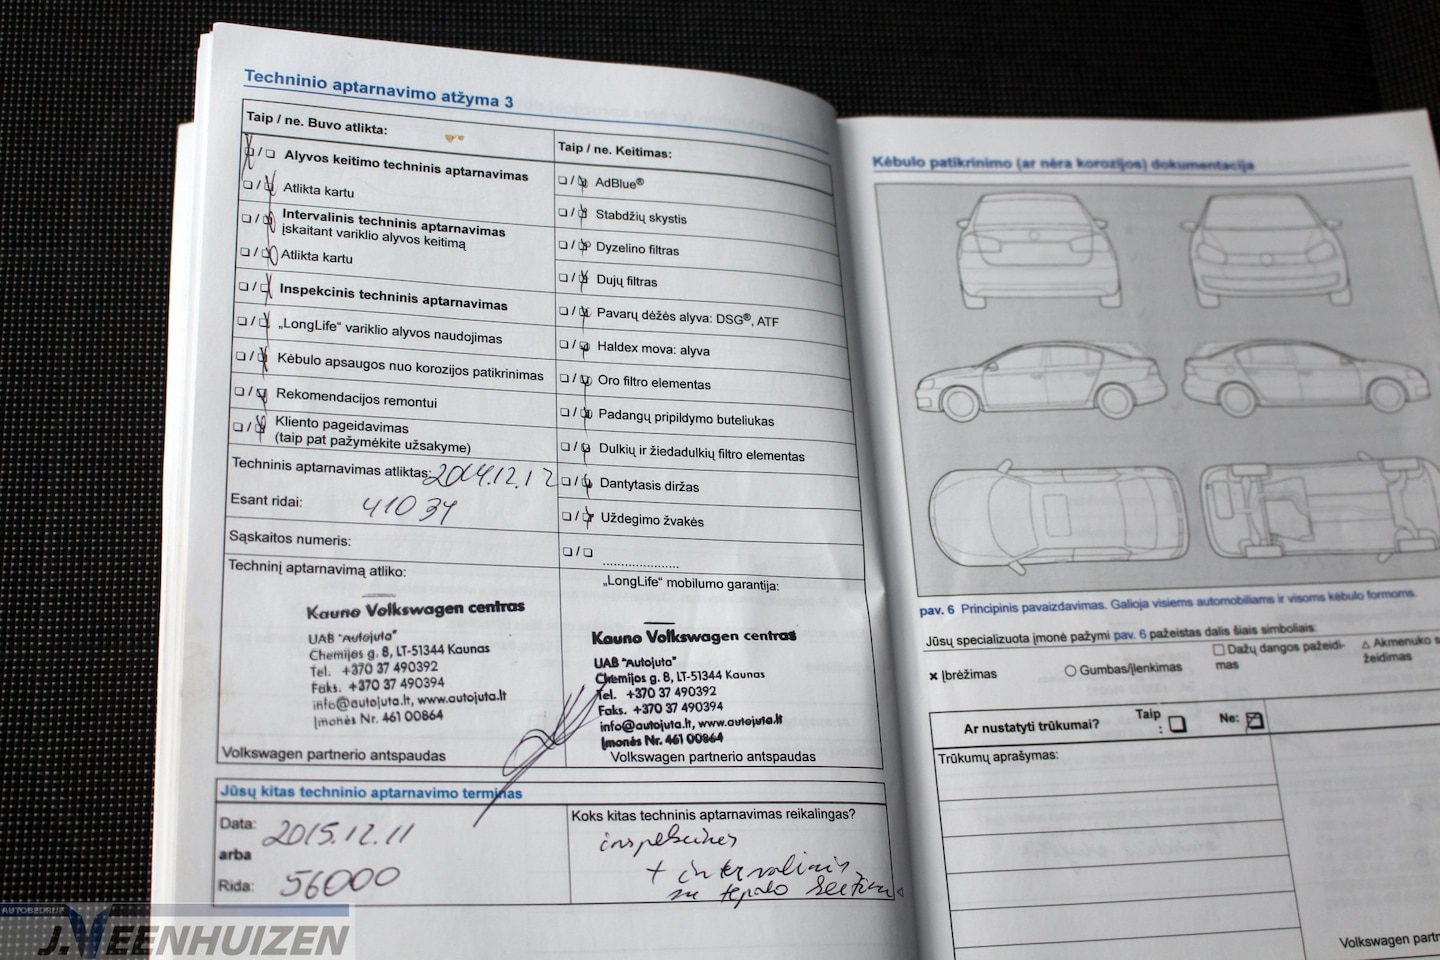 Techninio aptarnavimo atžyma 3
Taip / ne. Buvo atlikta:
Alyvos keitimo techninis aptarnavimas
Atlikta kartu
Intervalinis techninis aptarnavimas
įskaitant variklio alyvos keitimą
Atlikta kartu
Inspekcinis techninis aptarnavimas
„LongLife“ variklio alyvos naudojimas
Kėbulo apsaugos nuo korozijos patikrinimas
Rekomendacijos remontui
Kliento pageidavimas
(taip pat pažymėkite užsakyme)
Techninis aptarnavimas atliktas: 2014.12.12
Esant ridai: 41034
Sąskaitos numeris:
Techninį aptarnavimą atliko:
Kauno Volkswagen centras
UAB "Autojuta"
Chemijos g. 8, LT-51344 Kaunas
Tel. +370 37 490392
Faks. +370 37 490394
info@autojuta.lt, www.autojuta.lt
Įmonės Nr. 461 00864
Volkswagen partnerio antspaudas
Taip / ne. Keitimas:
AdBlue®
Stabdžių skystis
Dyzelino filtras
Dujų filtras
Pavarų dėžės alyva: DSG®, ATF
Haldex mova: alyva
Oro filtro elementas
Padangų pripildymo buteliukas
Dulkių ir žiedadulkių filtro elementas
Dantytasis diržas
Uždegimo žvakės
„LongLife“ mobilumo garantija:
Kauno Volkswagen centras
UAB "Autojuta"
Chemijos g. 8, LT-51344 Kaunas
Tel. +370 37 490392
Faks. +370 37 490394
info@autojuta.lt, www.autojuta.lt
Įmonės Nr. 461 00864
Volkswagen partnerio antspaudas
Jūsų kitas techninio aptarnavimo terminas
Data: 2015.12.11
arba
Rida: 56000
Koks kitas techninis aptarnavimas reikalingas?
inspekcinis
+ intervalinis
su tepalo
Kėbulo patikrinimo (ar nėra korozijos) dokumentacija
pav. 6 Principinis pavaizdavimas. Galioja visiems automobiliams ir visoms kėbulo formoms.
Jūsų specializuota įmonė pažymi pav. 6 pažeistas dalis šiais simboliais:
× Įbrėžimas
○ Gumbas/įlenkimas
□ Dažų dangos pažeidi-
mas
△ Akmenuko s
žeidimas
Ar nustatyti trūkumai?
Taip
:
Ne:
Trūkumų aprašymas:
Volkswagen partn
AUTOBEDRIJF
J. VEENHUIZEN